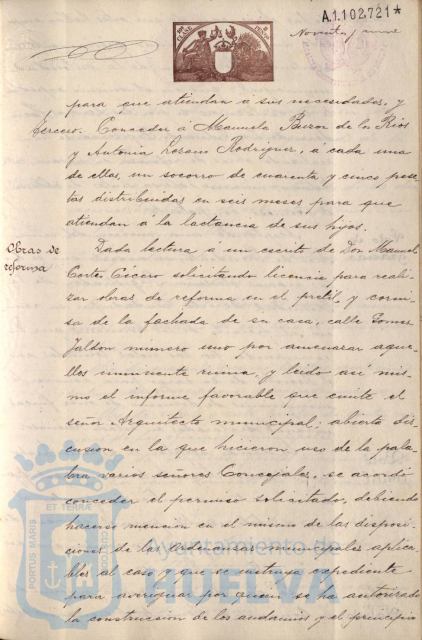 A.1.102,721*
Noventa y nueve
para que atiendan á sus necesidades, y
tercero. Conceder á Manuela Buzon de los Rios
y Antonia Lozano Rodriguez, á cada una
de ellas, un socorro de cuarenta y cinco pese
tas distribuidas en seis meses para que
atiendan á la lactancia de sus hijos.
Obras de
reforma
Dada lectura á un escrito de Don Manuel
Cortés Cícero solicitando licencia para reali
zar obras de reforma en el pretil, y corni
sa de la fachada de su casa, calle Gomez
Jaldon numero uno por amenazar aque
llos inminente ruina, y leido asi mis
mo el informe favorable que emite el
señor Arquitecto municipal: abierta dis
cusion en la que hicieron uso de la pala
bra varios señores Concejales, se acordó
conceder el permiso solicitado, debiendo
hacerse mencion en el mismo de las disposi
ciones de las ordenanzas municipales aplica
bles al caso y que se instruya expediente
para averiguar por quien se ha autorizado
la construccion de los andamios y el principio
PORTUS MARIS
ET TERRÆ
CUSTODIA
Ayuntamiento de
HUELVA